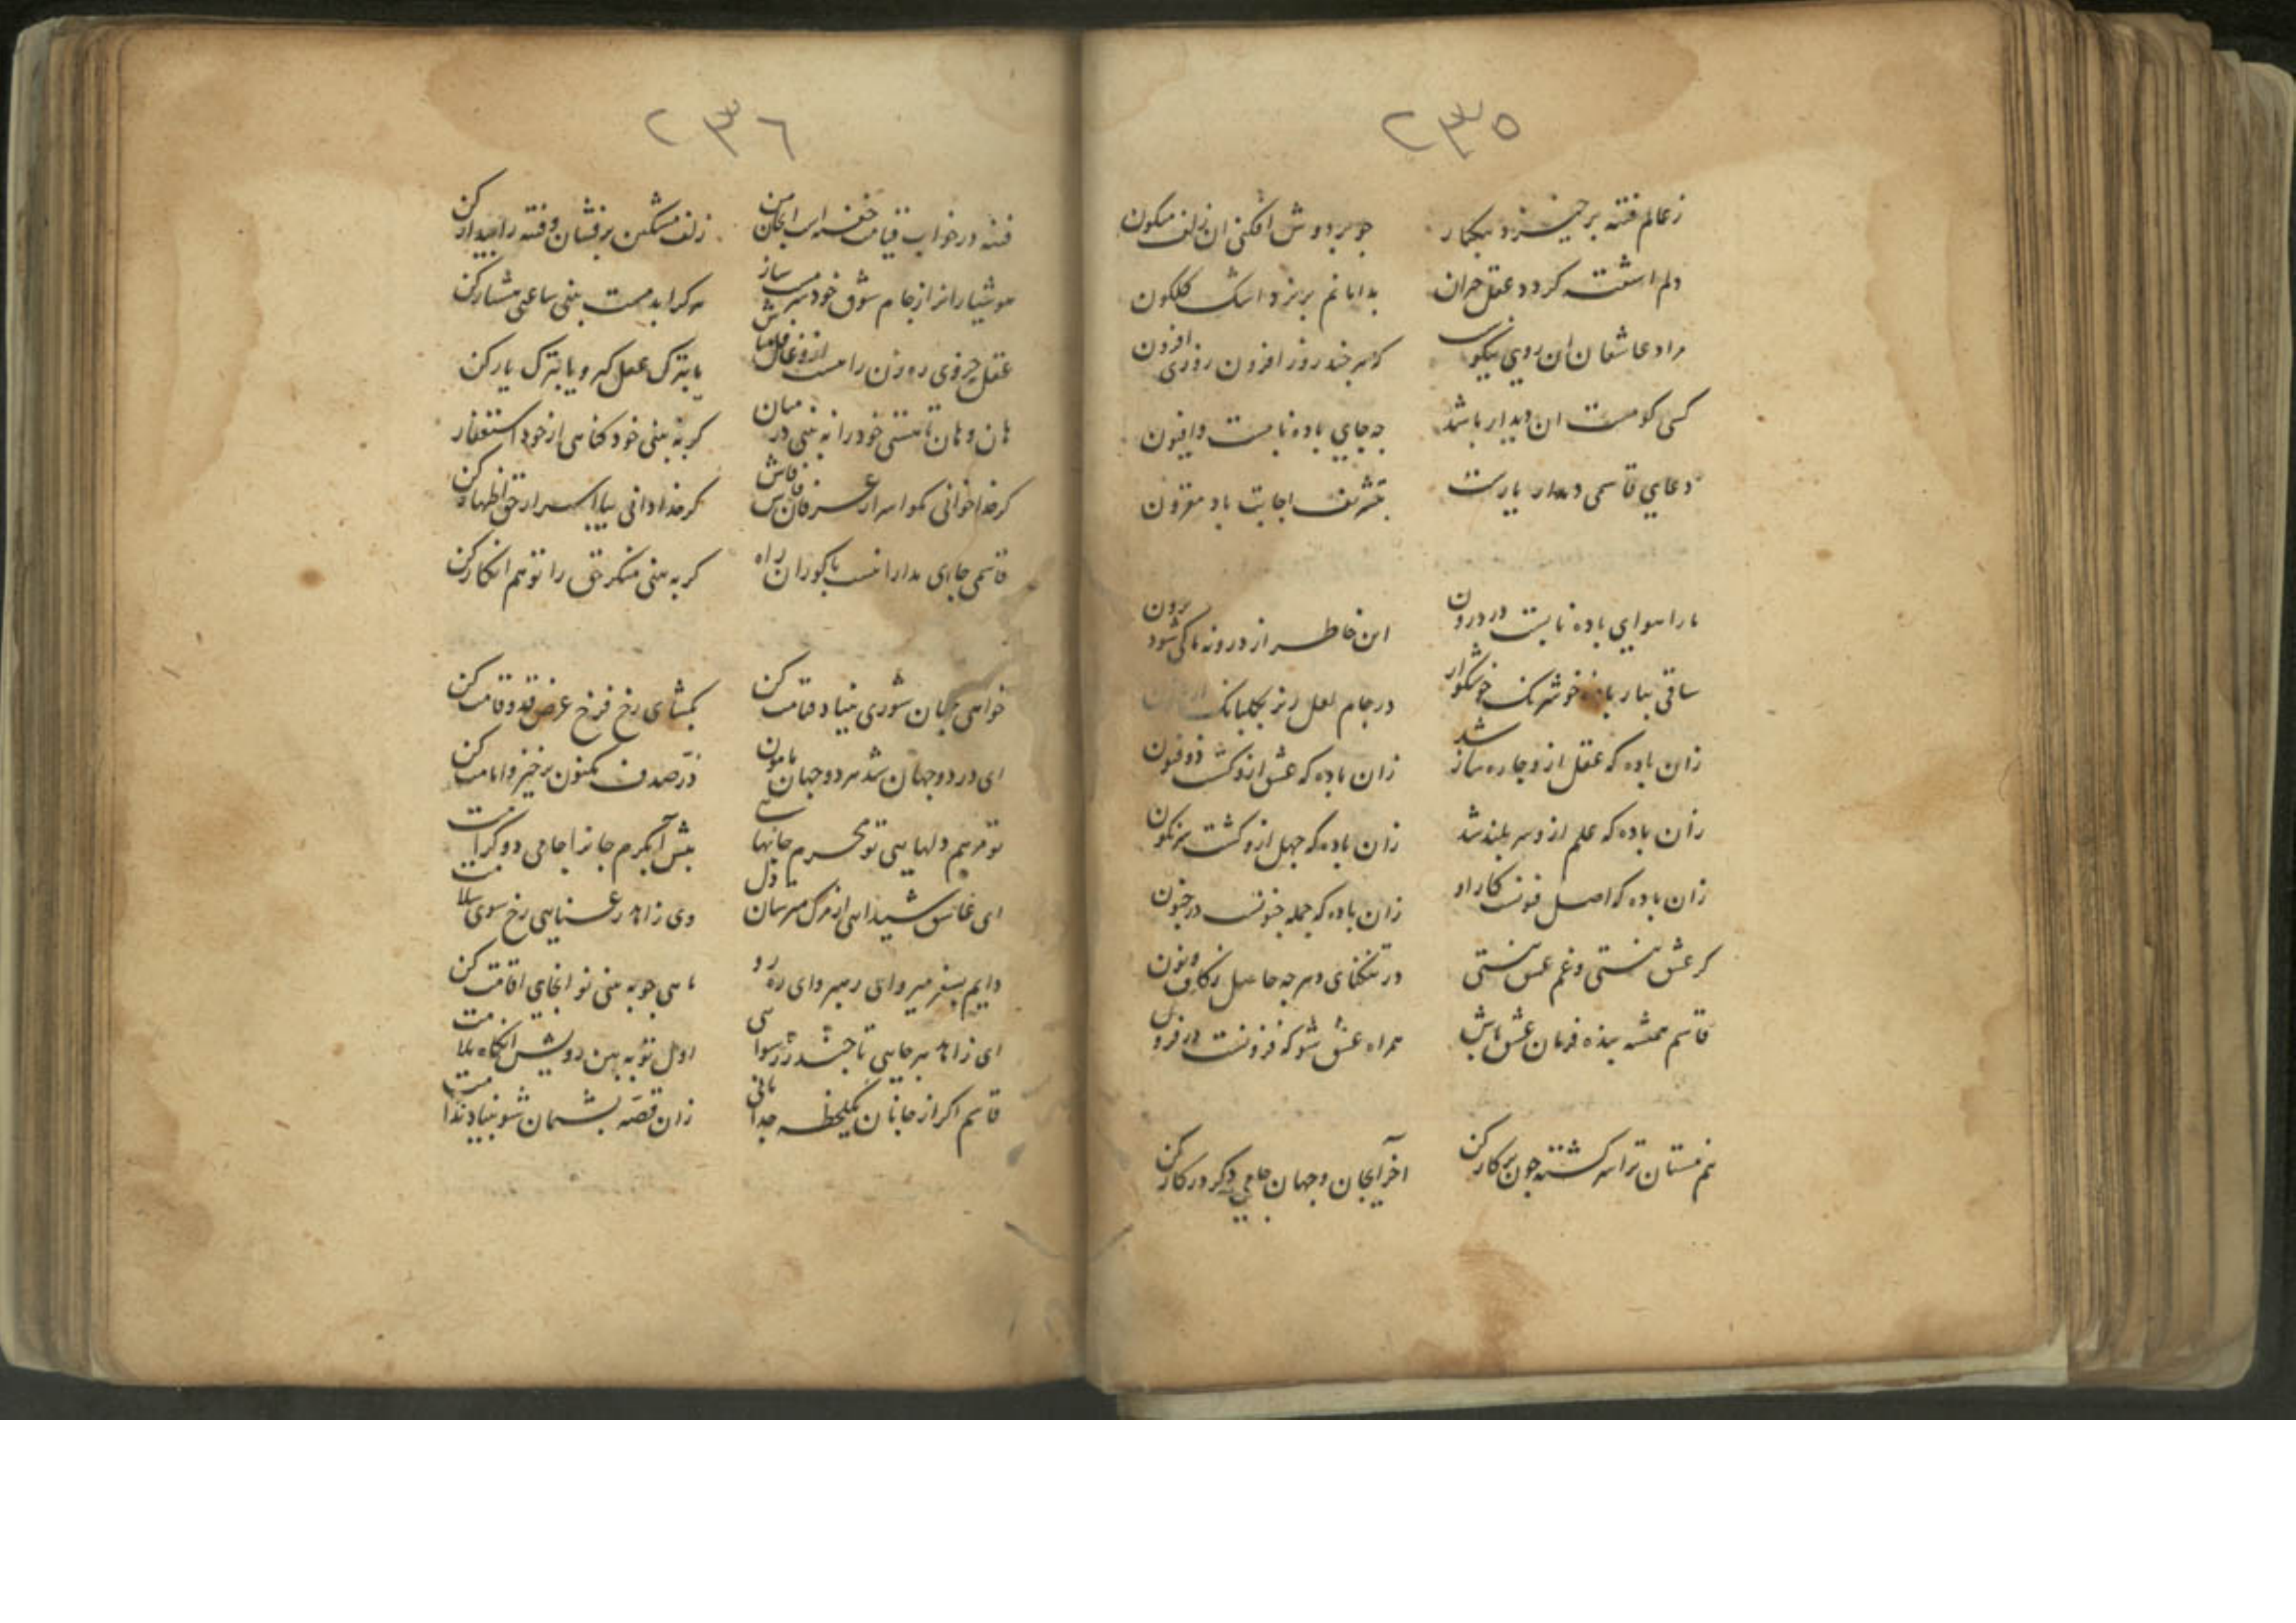 ٢٣٥
ز عالم فتنه برخیزد بیکبار جو بر دوش افکنی ان زلف میکون
دلم اشفته کردد عقل حیران بدامانم بریزد اشک کلکون
مراد عاشقان ان روی نیکوست که هر چند روز افزون روزی افزون
کسی کو مست ان دیدار باشد چه جای باده نابست و افیون
دعای قاسمی دیدار یارست بتشریف اجابت باد مقرون
ما را هوای باده نابست در درون این خاطر از درونه ما کی شود برون
ساقی بیار باده خوشرنک خوشکوار در جام لعل ریز بکلبانک
زان باده که عقل ازو چاره ساز شد زان باده که عشق ازو کشت ذو فنون
زان باده که علم ازو سر بلند شد زان باده که جهل ازو کشت سرنکون
زان باده که اصل فنونست کار او زان باده که جمله جنونست در جنون
کر عشق نیستی و غم عشق نیستی در تنکنای دهر چه حاصل ز کاف و نون
قاسم همیشه بنده فرمان عشق باش همراه عشق شو که فزونست در فزون
هم مستان ترا سرکشته چون پرکار کن اخر ای جان و جهان جامی دکر در کار کن
٢٣٦
فتنه در خواب قیامت خفته است ای جان من زلف مشکین برفشان و فتنه را بیدار کن
هوشیارانرا ز جام شوق خود سرمست ساز هر کرا بدمست بینی ساعتی هشیار کن
عقل چو روی رهزن راهست ازو غافل مباش یا بترک عقل کیر و یا بترک یار کن
هان و هان تا نیستی خود را نه بینی در میان کر به بینی خود کناهی از خود استغفار کن
کر خدا خوانی مکو اسرار عرفان فاش فاش کر خدا دانی بیا اسرار حق اظهار کن
قاسمی جای مدارا نیست با کوران راه کر به بینی منکر حق را تو هم انکار کن
خواهی بجهان شوری بنیاد قیامت کن بکشای رخ فرخ عرض قد و قامت کن
ای در دو جهان شد هر دو جهان هامون در صدف مکنون برخیز و امامت کن
تو مرهم دلهایی تو محرم جانهایی پیش آ بکرم جانرا جامی دو کرامت
ای عاشق شیدایی از مرک مترسان دل وی زاهد رعنایی رخ سوی سلامت
دایم بسفر میرو ای رهبر و ای ره رو ماهی چو به بینی تو انجای اقامت کن
ای زاهد هر جایی تا چند ز رسوایی اول تو به بین رویش انکاه ملامت
قاسم اکر از جانان یکلحظه جدا مانی زان قصه پشیمان شو بنیاد ندامت